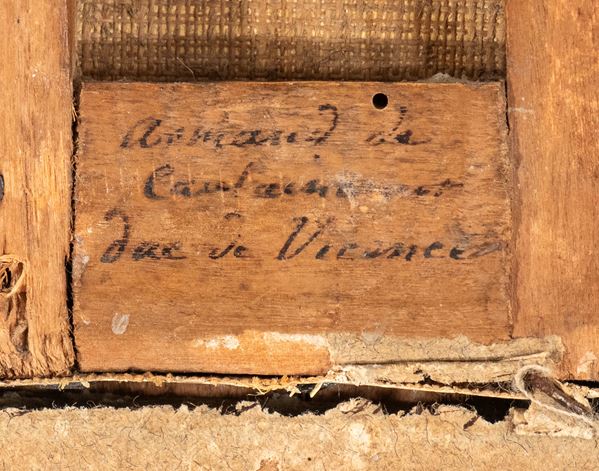 Armand de
Caulaincourt
duc de Vicence